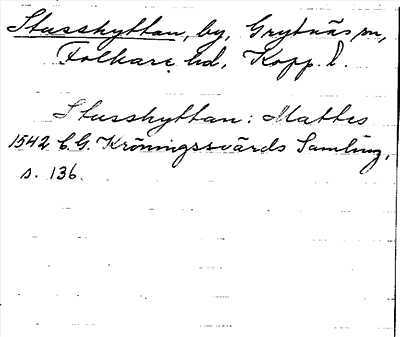 Stusshyttan, by, Grytnäs sn,
Folkare hd, Kopp. l.
Stusshyttan: Mattes
1542 C.G. Kröningssvärds Samling,
s. 136.